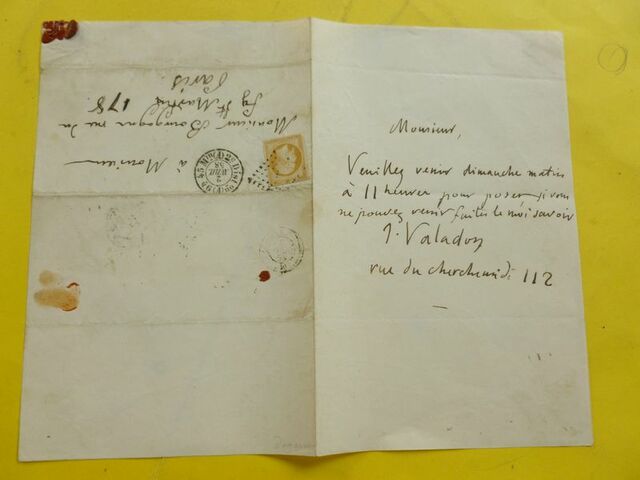 à Monsieur
Monsieur Bourgogne rue du
fg St Martin 178.
Paris.
Monsieur,
Veuillez venir dimanche matin
à 11 heures pour poser, si vous
ne pouvez venir faites le moi savoir
J. Valadon
rue du cherchemidi 112